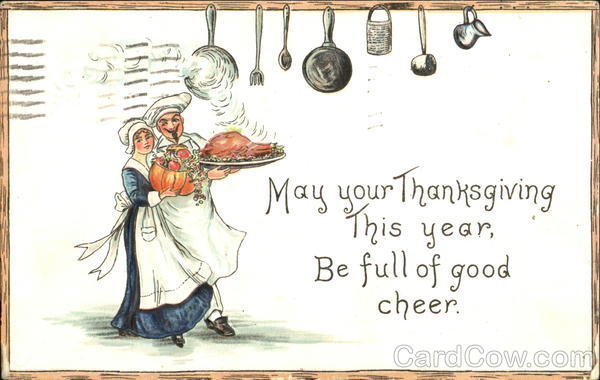 May your Thanksgiving
This year,
Be full of good
cheer.
CardCow.com